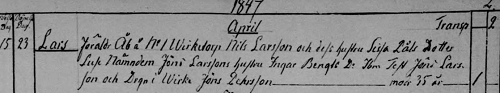 1847
April Transp 2
15 23 Lars Föräldr. Åb å N:o 1 Wirkstorp Nils Larsson och dess hustru Sissa Påls Dotter
Susc. Nämndem Jöns Larssons hustru Ingar Bengts Dr. Test Jöns Lars-
son och Drgn i Wirke Jöns Pehrsson mod 35 år 1